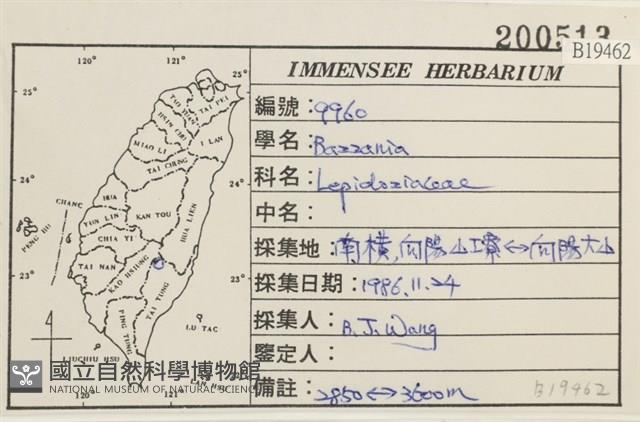 200513
B19462
IMMENSEE HERBARIUM
編號：9960
學名：Bazzania
科名：Lepidoziaceae
中名：
採集地：南橫,向陽山工寮↔向陽大山
採集日期：1986.11.24
採集人：B.J.Wang
鑒定人：
備註：2850↔3600m
B19462
120° 121°
25° 25°
TAO YUAN
TAI PEI
HSIN CHU
I LAN
MIAO LI
TAI CHUNG
24° 24°
CHANG HUA
HUA LIEN
YUN LIN
NAN TOU
PENG HU
CHIA YI
TAI NAN
KAO HSIUNG
23° 23°
TAI TUNG
PING TUNG
LU TAO
LIUCHIU HSU
LAN HSU
120° 121°
國立自然科學博物館
NATIONAL MUSEUM OF NATURAL SCIENCE